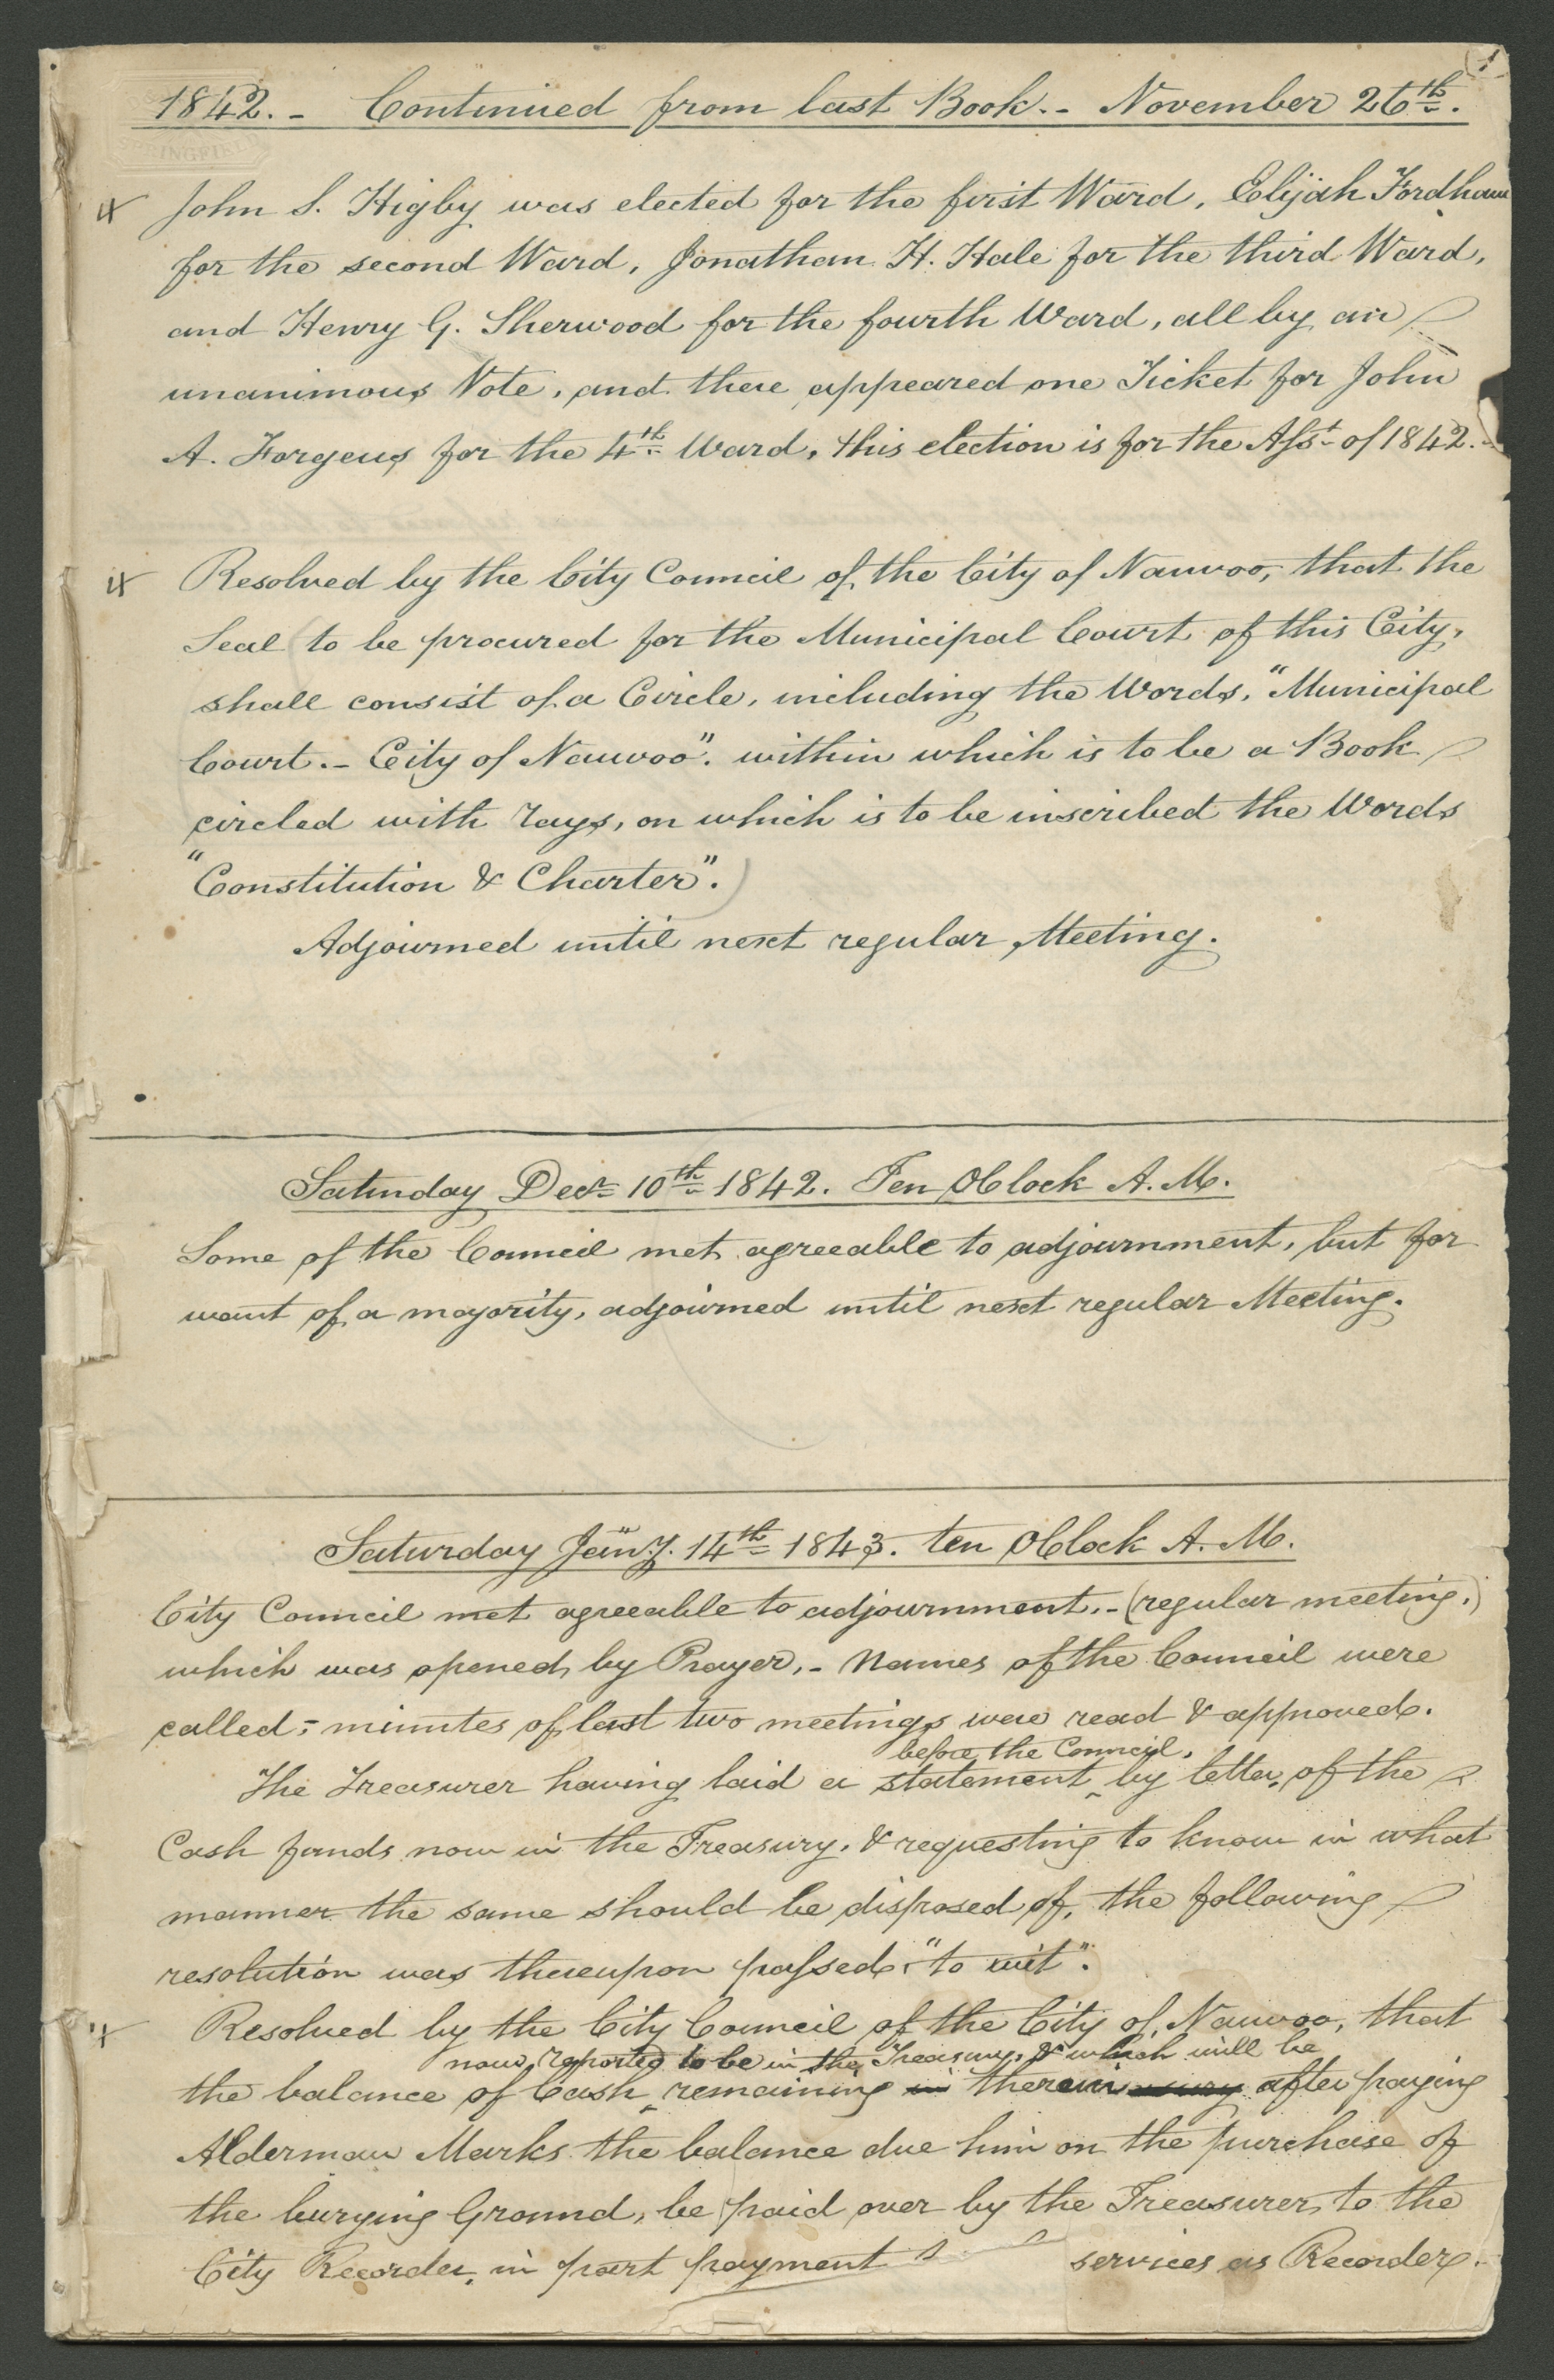 1
1842.- Continued from last Book.- November 26th.
SPRINGFIELD
John S. Higby was elected for the first Ward, Elijah Fordham
for the second Ward, Jonathan H. Hale for the third Ward,
and Henry G. Sherwood for the fourth Ward, all by an
unanimous Vote, and there appeared one Ticket for John
A. Forgeus for the 4th Ward, this election is for the Asst of 1842.-
Resolved by the City Council of the City of Nauvoo, that the
Seal (to be procured for the Municipal Court of this City,
shall consist of a Circle, including the Words, "Municipal
Court.- City of Nauvoo". within which is to be a Book
circled with rays, on which is to be inscribed the Words
"Constitution & Charter".)
Adjourned until next regular Meeting.
Saturday Decr 10th 1842. Ten OClock A.M.
Some of the Council met agreeable to adjournment, but for
want of a majority, adjourned until next regular Meeting.
Saturday Jany. 14th 1843. ten OClock A.M.
City Council met agreeable to adjournment.-(regular meeting,)
which was opened by Prayer,- Names of the Council were
called;- minutes of last two meetings were read & approved.
before the Council,
The Treasurer having laid a statement ^ by letter, of the
Cash funds now in the Treasury, & requesting to know in what
manner the same should be disposed of, the following
resolution was thereupon passed, "to wit".
Resolved by the City Council of the City of Nauvoo, that
now reported to be in the Treasury, & which will be
the balance of Cash ^ remaining in therein after paying
Alderman Marks the balance due him on the purchase of
the burying Ground, be paid over by the Treasurer, to the
City Recorder, in part payment services as Recorder.